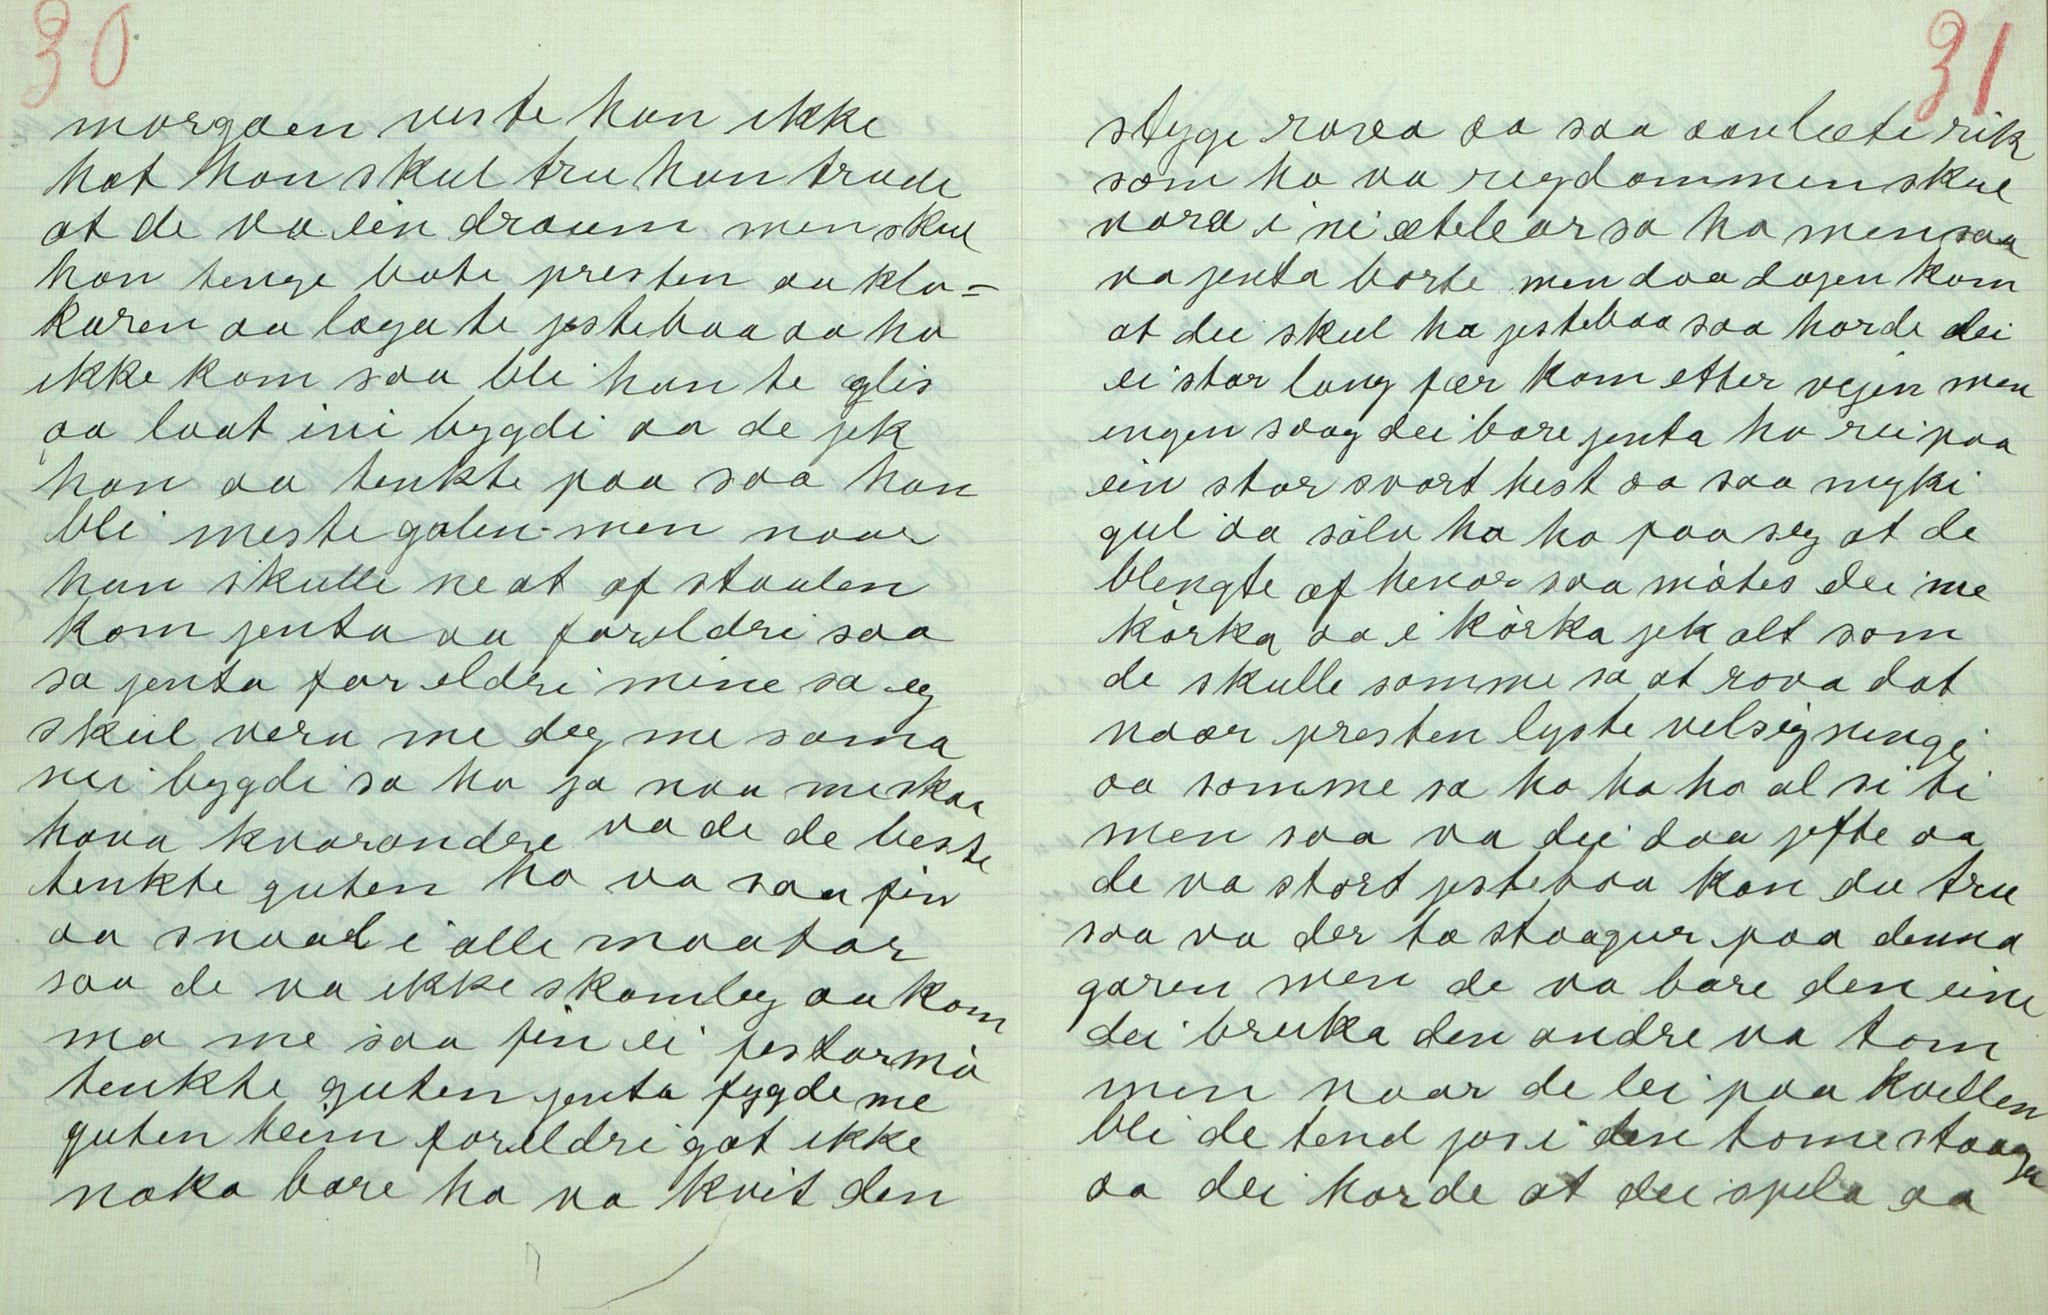 30
morgaen veste han ikke
hat han skul tru han trude
at de va ein draum men skul
han tenge bote presten aa klo=
karen aa laga te jestebaa aa ho
ikke kom saa bli han te glis
aa laat ini bygdi aa de jek
han aa tenkte paa saa han
bli meste galen men naar
han skulle ne at af staulen
kom jenta aa foreldri saa
sa jenta foreldri mine sa eg
skul vera me deg me soma
nei bygdi sa ho ja naa me skaa
hava kvarandre va de de beste
tenkte guten ho va saa fin
aa snaal i alle maatar
saa de va ikke skamleg aa kom
ma me saa fin ei festarmö
tenkte guten jenta fygde me
guten heim foreldri gat ikke
noko bare ho va kvit den
31
stygge rova aa saa aanlæte rik
som ho va regdommen skul
vara i ni ætelear sa ho men saa
va jenta borte men daa dagen kom
at dei skul ha jestebaa saa horde dei
ei stor lang fær kom etter vejen men
engen saag dei bare jenta ho rei paa
ein stor svart hest aa saa myki
gul aa sölv ha ho paa seg at de
blengte af henar saa mötes dei me
körka aa i körka jek alt som
de skulle somme sa at rova dat
naar presten lyste velsigningi
aa somme sa ho ha ho al si ti
men saa va dei daa jefte aa
de va stort jestebaa kan du tru
saa va der to staagur paa denna
garen men de va bare den eine
dei bruka den andre va tom
men naar de lei paa kvellen
bli de tend jos i den tome staagu
aa dei horde at dei spela aa